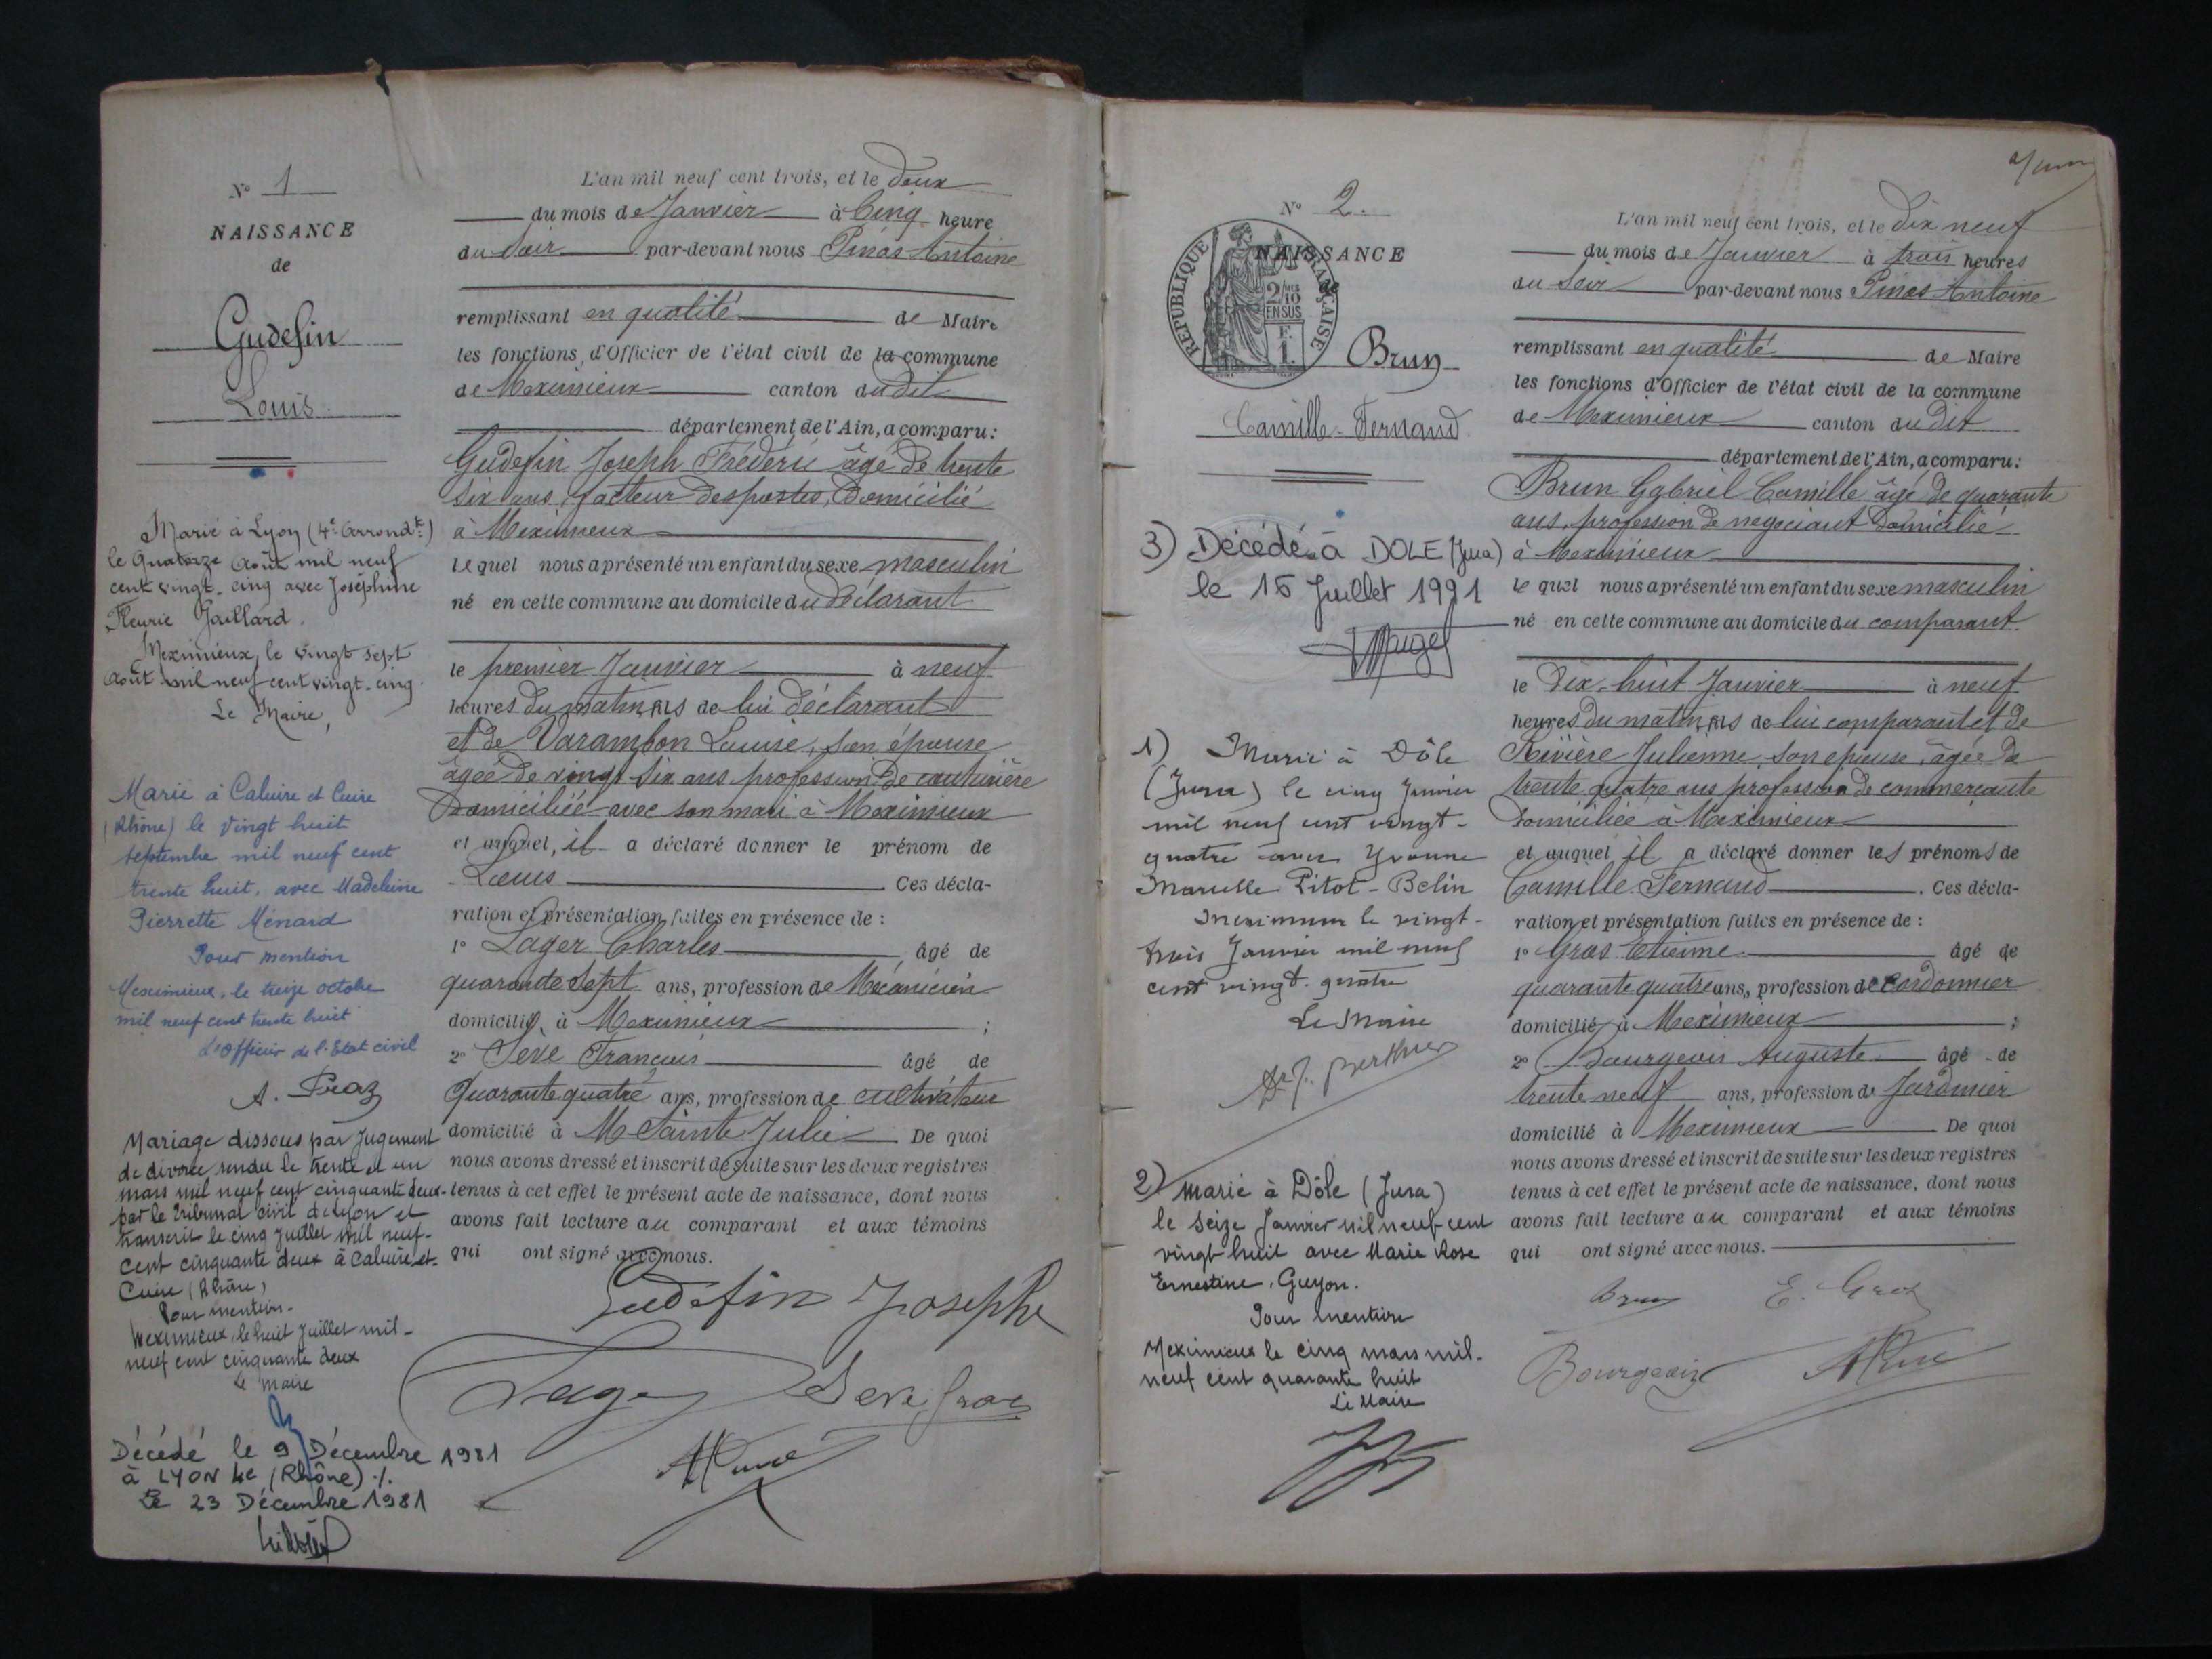 N° 1
NAISSANCE
de
Gudefin
Louis
Marié à Lyon (4e Arrondt)
le Quatorze Août mil neuf
cent vingt-cinq avec Joséphine
Fleurie Gaillard.
Meximieux, le vingt sept
Août mil neuf cent vingt-cinq.
Le Maire,
Marié à Caluire et Cuire
(Rhône) le vingt huit
septembre mil neuf cent
trente huit, avec Madeleine
Pierrette Ménard
Pour mention
Meximieux, le treize octobre
mil neuf cent trente huit
L'officier de l'Etat civil
A. Praz
Mariage dissous par Jugement
de divorce rendu le trente et un
mars mil neuf cent cinquante deux
par le Tribunal civil de Lyon et
transcrit le cinq juillet mil neuf-
cent cinquante deux à Caluire-et-
Cuire (Rhône)
Pour mention-
Meximieux, le huit Juillet mil-
neuf cent cinquante deux
Le Maire
Décédé le 9 Décembre 1981
à LYON 4e (Rhône) ./.
Le 23 Décembre 1981
L'an mil neuf cent trois, et le deux
du mois de Janvier à Cinq heure
du Soir par-devant nous Pinos Antoine
remplissant en qualité de Maire
les fonctions d'Officier de l'état civil de la commune
de Meximieux canton dudit
département de l'Ain, a comparu:
Gudefin Joseph Fréderic âgé de trente
six ans, facteur des postes, domicilié
à Meximieux
lequel nous a présenté un enfant du sexe masculin
né en cette commune au domicile du déclarant
le premier Janvier à neuf
heures du matin, fils de lui déclarant
et de Varambon Louise, son épouse
âgée de vingt six ans profession de couturière
domiciliée avec son mari à Meximieux
et auquel, il a déclaré donner le prénom de
Louis Ces décla-
ration et présentation faites en présence de :
1° Lager Charles âgé de
quarante sept ans, profession de Mécanicien
domicilié à Meximieux ;
2° Seve François âgé de
Quarante quatre ans, profession de cultivateur
domicilié à Sainte Julie De quoi
nous avons dressé et inscrit de suite sur les deux registres
tenus à cet effet le présent acte de naissance, dont nous
avons fait lecture au comparant et aux témoins
qui ont signé avec nous.
Gudefin Josephe
Lager Seve
N° 2.
NAISSANCE
de
REPUBLIQUE FRANÇAISE
2/10 EN SUS
F.
1.
Brun
Camille-Fernand
3) Décédé à DOLE (Jura)
le 15 Juillet 1991
1) Marié à Dôle
(Jura) le cinq Janvier
mil neuf cent vingt-
quatre avec Yvonne
Marcelle Pitot-Belin
Meximieux le vingt-
trois Janvier mil neuf
cent vingt-quatre
Le Maire
Dr J. Berthier
2) Marié à Dôle (Jura)
le seize Janvier mil neuf-cent
vingt-huit avec Marie Rose
Ernestine Guyon.
Pour mention
Meximieux le cinq mars mil-
neuf cent quarante huit
Le Maire
L'an mil neuf cent trois, et le Dix neuf
du mois de Janvier à trois heures
du Soir par-devant nous Pinos Antoine
remplissant en qualité de Maire
les fonctions d'Officier de l'état civil de la commune
de Meximieux canton dudit
département de l'Ain, a comparu:
Brun Gabriel Camille âgé de quarante
ans, profession de negociant domicilié
à Meximieux
lequel nous a présenté un enfant du sexe masculin
né en cette commune au domicile du comparant
le Dix-huit Janvier à neuf
heures du matin, fils de lui comparant et de
Rivière Julienne, son épouse, âgée de
trente quatre ans profession de commerçante
domiciliée à Meximieux
et auquel il a déclaré donner les prénoms de
Camille Fernand. Ces décla-
ration et présentation faites en présence de :
1° Gros Etienne âgé de
quarante quatre ans, profession de Cordonnier
domicilié à Meximieux ;
2° Bourgeois Auguste âgé de
trente neuf ans, profession de Jardinier
domicilié à Meximieux De quoi
nous avons dressé et inscrit de suite sur les deux registres
tenus à cet effet le présent acte de naissance, dont nous
avons fait lecture au comparant et aux témoins
qui ont signé avec nous.
Brun E. Gros
Bourgeois